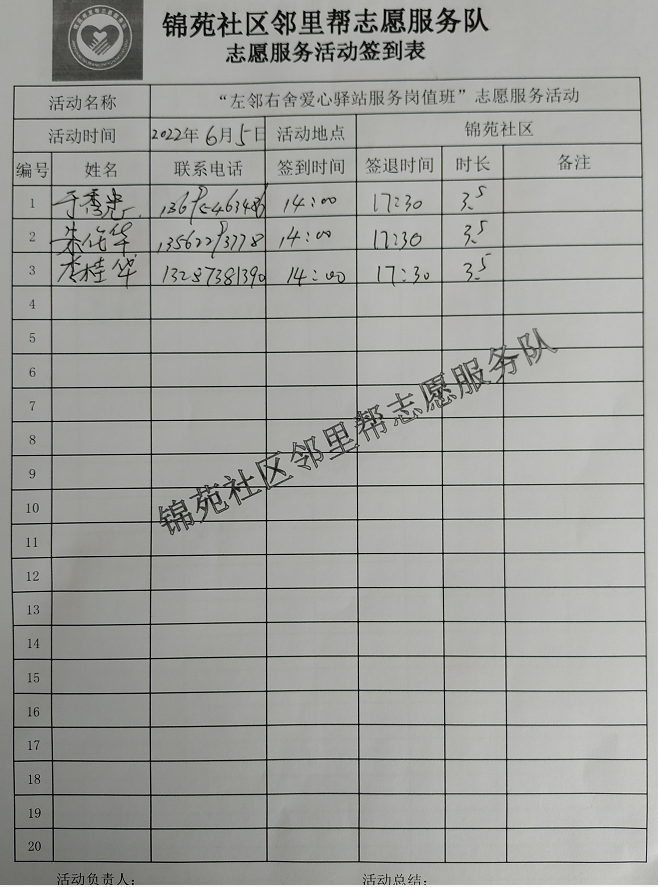 锦苑社区邻里帮志愿服务队
志愿服务活动签到表
活动名称 “左邻右舍爱心驿站服务岗值班”志愿服务活动
活动时间 2022年6月5日 活动地点 锦苑社区
编号 姓名 联系电话 签到时间 签退时间 时长 备注
1 于秀忠 14:00 17:30 3.5
2 朱佐华 14:00 17:30 3.5
3 李桂华 13287381390 14:00 17:30 3.5
4
5
6
7
8
9
10
11
12
13
14
15
16
17
18
19
20
锦苑社区邻里帮志愿服务队
活动负责人: 活动总结: